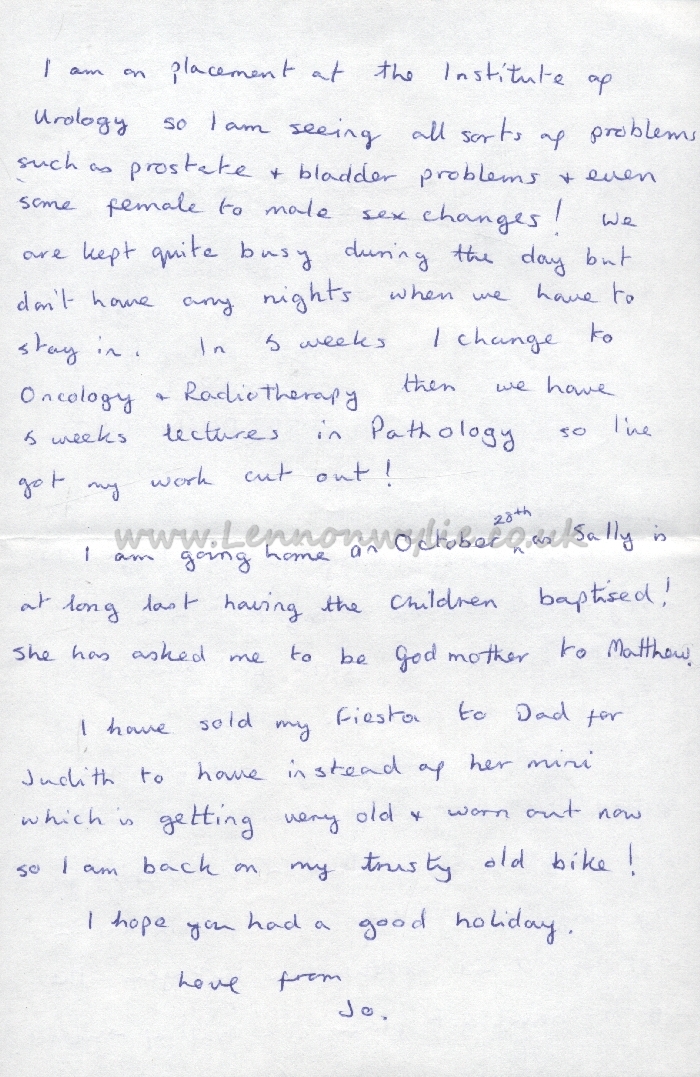 I am on placement at the Institute of
Urology so I am seeing all sorts of problems
such as prostate + bladder problems + even
some female to male sex changes! We
are kept quite busy during the day but
don't have any nights when we have to
stay in. In 5 weeks I change to
Oncology + Radiotherapy then we have
5 weeks lectures in Pathology so I've
got my work cut out!
www.Lennonwylie.co.uk
I am going home on October 28th as Sally is
at long last having the children baptised!
She has asked me to be Godmother to Matthew.
I have sold my Fiesta to Dad for
Judith to have instead of her mini
which is getting very old + worn out now
so I am back on my trusty old bike!
I hope you had a good holiday.
Love from
Jo.